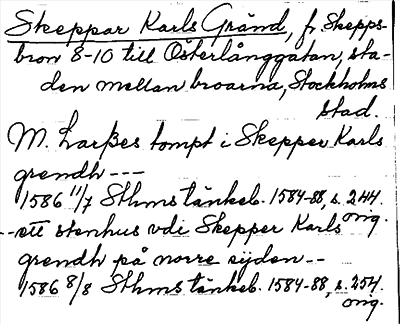 Skeppar Karls Gränd, fr. Skepps-
bron 8-10 till Österlånggatan, sta-
den mellan broarna, Stockholms
stad.
M. Larßes tompt i Skepper Karls
grendh ---
1586 11/7 Sthms tänkeb. 1584-88, s. 244.
orig.
--ett stenhus vdi Skepper Karls
grendh på norre sijden --
1586 8/8 Sthms tänkeb. 1584-88, s. 254.
orig.